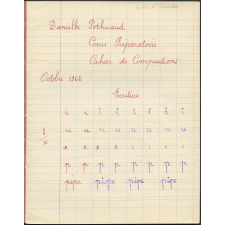 Danielle
Cours Préparatoire
Cahier de Compositions
Octobre 1962
Ecriture
i i i i i i i i
u u u u u u u u
e e e e e e e e
p p p p p p p p
pipe pipe pipe pipe